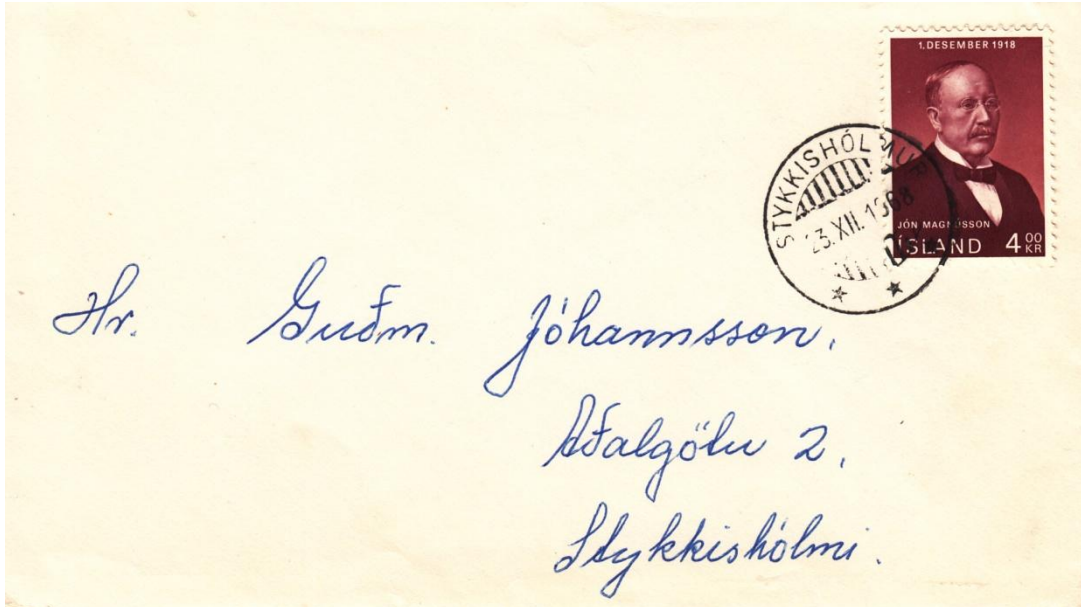 1. DESEMBER 1918
JÓN MAGNÚSSON
ÍSLAND 4 00 KR
STYKKISHÓLMUR
23.XII.1968
Hr. Guðm. Jóhannsson,
Aðalgötu 2,
Stykkishólmi.